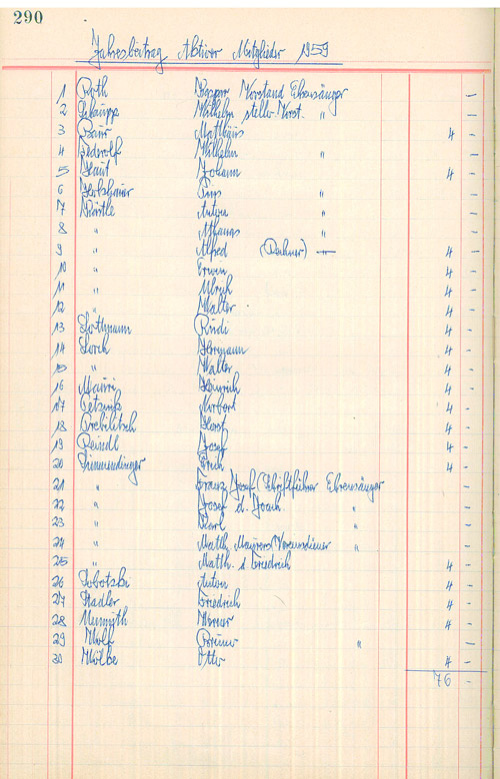 290
Jahresbeitrag Aktiver Mitglieder 1959
1 Roth Kaspar Vorstand Ehrensänger -
2 Schaupp Wilhelm stellv. Vorst. " -
3 Baur Matthäus 4 -
4 Wilhelm " -
5 Haut Johann 4 -
6 Pius " -
7 Anton " -
8 " Athanas " -
9 " Alfred 4 -
10 " Erwin 4 -
11 " Ulrich 4 -
12 " Walter 4 -
13 Rudi 4 -
14 Lorch Hermann 4 -
15 " Walter 4 -
16 Mauri Heinrich 4 -
17 Norbert 4 -
18 Horst 4 -
19 Reindl Josef 4 -
20 Simmendinger Erich 4 -
21 " Franz Josef (Schriftführer Ehrensänger -
22 " Josef d. Joach. " -
23 " Karl " -
24 " Matth. Maurers (Vereinsdiener " -
25 " Matth. d. Friedrich 4 -
26 Sobotzki Anton 4 -
27 Stadler Friedrich 4 -
28 Werner 4 -
29 Wolf Bruno " -
30 Wölbe Otto 4 -
76 -